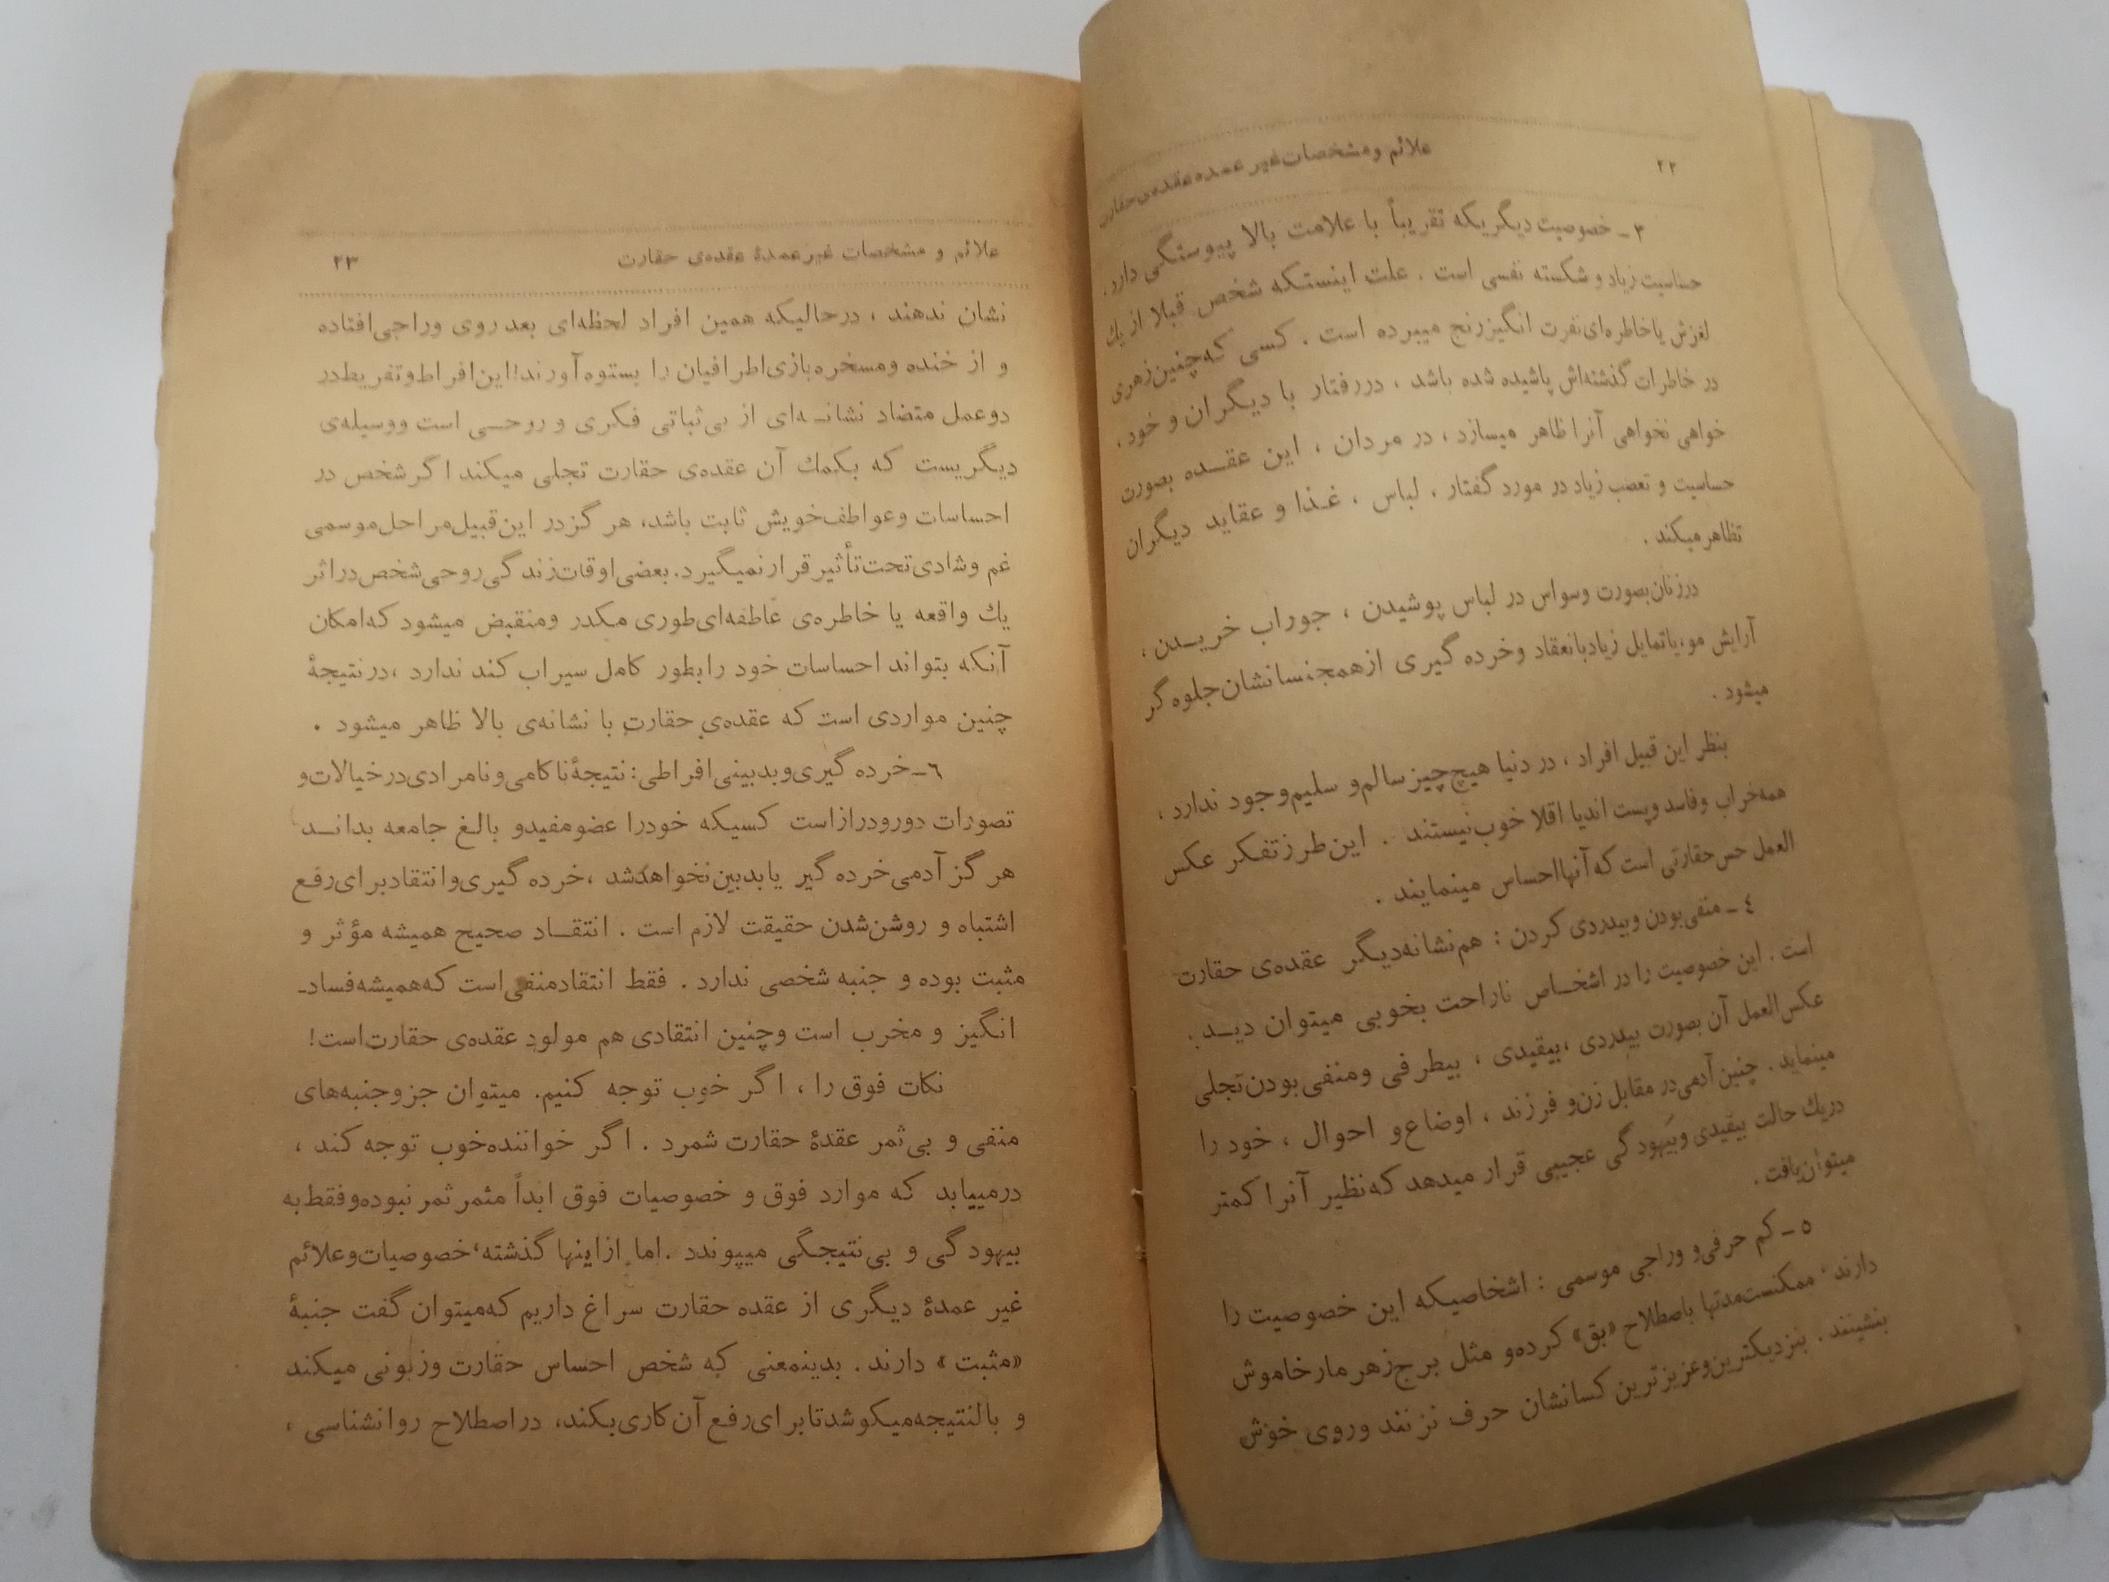 ۲۲
علائم و مشخصات غیر عمده عقده‌ی حقارت
۳ـ خصوصیت دیگریکه تقریباً با علامت بالا پیوستگی دارد.
حساسیت زیاد و شکسته نفسی است . علت اینستکه شخص قبلا از یك
لغزش یا خاطره‌ای نفرت انگیز رنج میبرده است . کسی که چنین زهری
در خاطرات گذشته‌اش پاشیده شده باشد ، دررفتار با دیگران و خود،
خواهی نخواهی آنرا ظاهر میسازد ، در مردان ، این عقــده بصورت
حساسیت و تعصب زیاد در مورد گفتار ، لباس ، غذا و عقاید دیگران
تظاهر میکند .
درزنان بصورت وسواس در لباس پوشیدن ، جوراب خریــدن ،
آرایش مو، یا تمایل زیاد بانعقاد وخرده گیری از همجنسانشان جلوه گر
میشود .
بنظر این قبیل افراد ، در دنیا هیچ چیز سالم و سلیم وجود ندارد ،
همه خراب وفاسد وپست اندیا اقلا خوب نیستند . این طرز تفکر عکس
العمل حس حقارتی است که آنها احساس مینمایند .
٤ـ منفی بودن و بیدردی کردن : هم نشانه دیگر عقده‌ی حقارت
است . این خصوصیت را در اشخــاص ناراحت بخوبی میتوان دیــد .
عکس العمل آن بصورت بیدردی ، بیقیدی ، بیطرفی ومنفی بودن تجلی
مینماید . چنین آدمی در مقابل زن و فرزند ، اوضاع و احوال ، خود را
دریك حالت بیقیدی وبیهودگی عجیبی قرار میدهد که نظیر آنرا کمتر
میتوان یافت .
٥ـ کم حرفی و وراجی موسمی : اشخاصیکه این خصوصیت را
دارند، ممکنست مدتها باصطلاح «بق» کرده و مثل برج زهر مار خاموش
بنشینند . بنزدیکترین وعزیزترین کسانشان حرف نزنند وروی خوش
علائم و مشخصات غیر عمدهٔ عقده‌ی حقارت
۲۳
نشان ندهند ، درحالیکه همین افراد لحظه‌ای بعد روی وراجی افتاده
و از خنده ومسخره بازی اطرافیان را بستوه آورند! این افراط و تفریط در
دوعمل متضاد نشانـه‌ای از بی ثباتی فکری و روحــی است ووسیله‌ی
دیگریست که بکمك آن عقده‌ی حقارت تجلی میکند اگر شخص در
احساسات وعواطف خویش ثابت باشد، هرگز در این قبیل مراحل موسمی
غم وشادی تحت تأثیر قرار نمیگیرد. بعضی اوقات زندگی روحی شخص در اثر
یك واقعه یا خاطره‌ی عاطفه‌ای طوری مکدر ومنقبض میشود که امکان
آنکه بتواند احساسات خود را بطور کامل سیراب کند ندارد ، در نتیجهٔ
چنین مواردی است که عقده‌ی حقارت با نشانه‌ی بالا ظاهر میشود .
٦ـ خرده گیری و بدبینی افراطی : نتیجهٔ ناکامی و نامرادی در خیالات و
تصورات دور و دراز است کسیکه خودرا عضو مفید و بالغ جامعه بدانــد
هرگز آدمی خرده گیر یا بدبین نخواهد شد ، خرده گیری وانتقاد برای رفع
اشتباه و روشن شدن حقیقت لازم است . انتقــاد صحیح همیشه مؤثر و
مثبت بوده و جنبه شخصی ندارد . فقط انتقاد منفی است که همیشه فسادـ
انگیز و مخرب است وچنین انتقادی هم مولود عقده‌ی حقارت است!
نکات فوق را ، اگر خوب توجه کنیم. میتوان جزو جنبه‌های
منفی و بی ثمر عقدهٔ حقارت شمرد . اگر خواننده خوب توجه کند ،
درمییابد که موارد فوق و خصوصیات فوق ابداً مثمر ثمر نبوده و فقط به
بیهودگی و بی نتیجگی میپوندد .اما از اینها گذشته، خصوصیات و علائم
غیر عمدهٔ دیگری از عقده حقارت سراغ داریم که میتوان گفت جنبهٔ
«مثبت» دارند . بدینمعنی که شخص احساس حقارت وزبونی میکند
و بالنتیجه میکوشد تا برای رفع آن کاری بکند، در اصطلاح روانشناسی ،